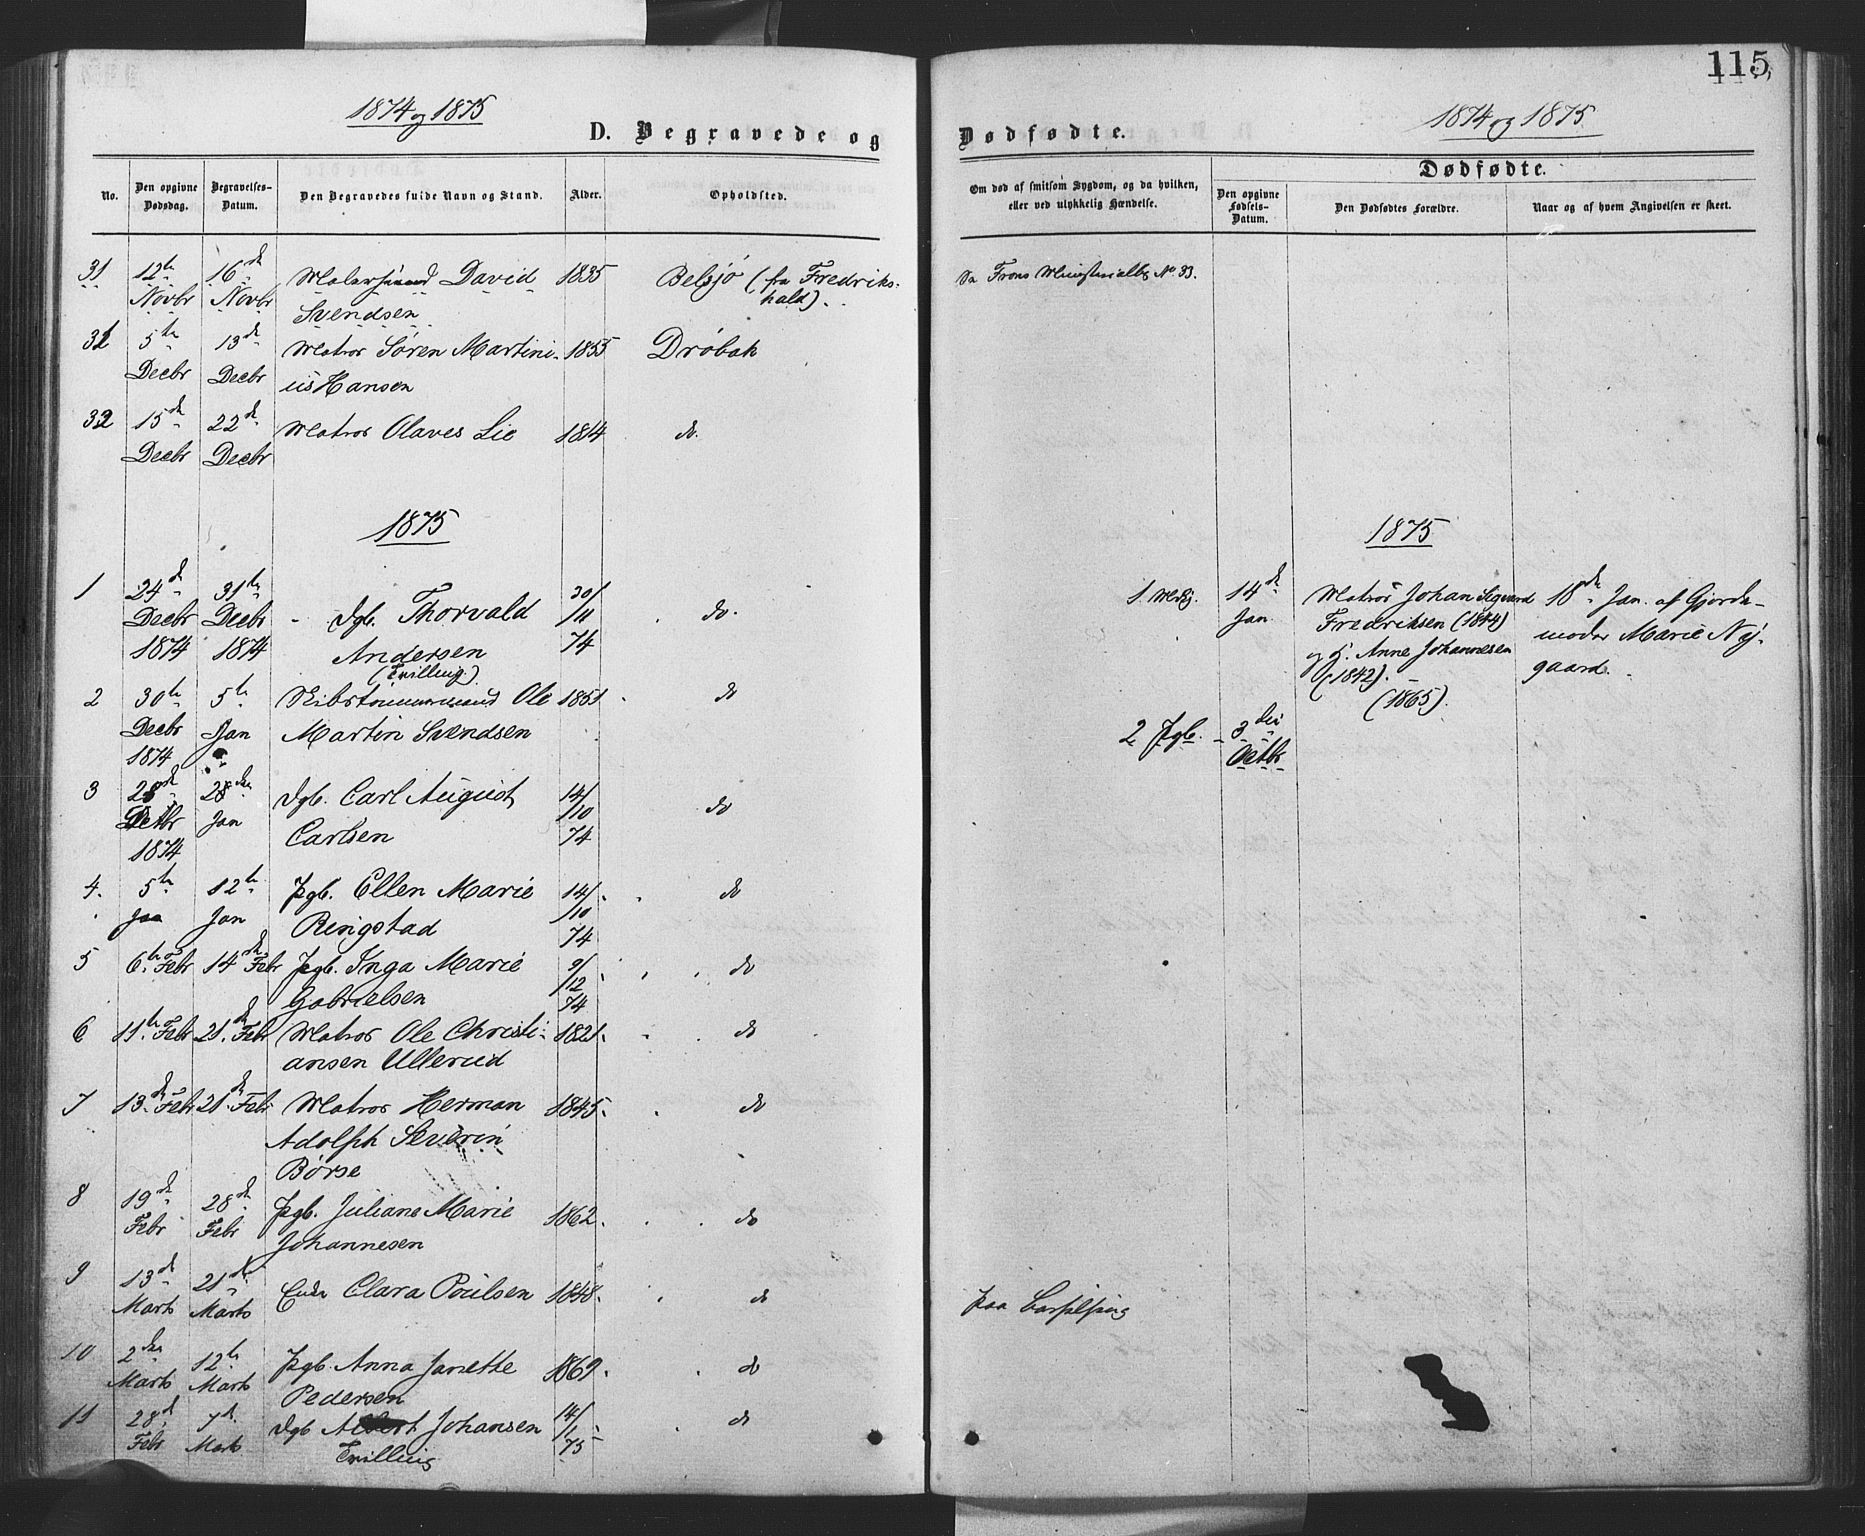 115
1874 og 1875
D. Begravede og
No.
Den opgivne Dødsdag.
Begravelses-Datum.
Den Begravedes fulde Navn og Stand.
Alder.
Opholdsted.
31 12te 16de David 1835 Belsjø (fra Fredriks-
Novbr Novbr Svendsen hald).
31 5te 13de Matros Søren Martini- 1855 Drøbak
Decbr Decbr us Hansen
32 15de 22de Matros Olaves Lie 1814 do.
Decbr Decbr
1875
1 24de 31te 30/
Decbr Decbr Dgb. Thorvald /11 do.
1874 1874 Andersen 74
(Tvilling)
2 30te 5te Skibstømmermand Ole 1851 do
Decbr Jan Martin Svendsen
1874
3 28de 28de Dgb. Carl August 14/ do
Jan /10
1874 Carlsen 74
4. 5te 12te Pgb. Ellen Marie 14/ do
Jan Jan Ringstad /10
74
5 6te Febr 14de Febr Pgb. Inga Marie 9/ do
/12
Gabrielsen 74
6 11te Febr 21de Febr Matros Ole Christi- 1821 do
ansen Ullerud
7 13de Febr 21de Febr Matros Herman 1845 do
Adolph Severin
Børse
8 19de 28de Pgb. Juliane Marie 1862 do
Febr Febr Johannesen
9 13de 21de Clara Poulsen 1848 do
Marts Marts
10 2den 12te Pgb. Anna Janette 1869 do
Marts Marts Pedersen
11 28de 7de Dgb Albert Johansen 14/ do
Febr Marts /1
Tvilling 75
Dødfødte.
1874 og 1875
Dødfødte.
Om død af smitsom Sygdom, og da hvilken,
eller ved ulykkelig Hændelse.
Den opgivne Fødsels-Datum.
Den Dødfødtes Forældre.
Naar og af hvem Angivelsen er skeet.
Se Frons Ministerialbg No. 33.
1875
1 14de Matros Johan Sigvard 18de Jan. af Gjorde-
Jan Fredriksen (1844) moder Marie Ny-
og H. Anne Johannesen gaard.
(1842).
(1865).
2 Pgb. 3die
Octbr
paa Barselseng